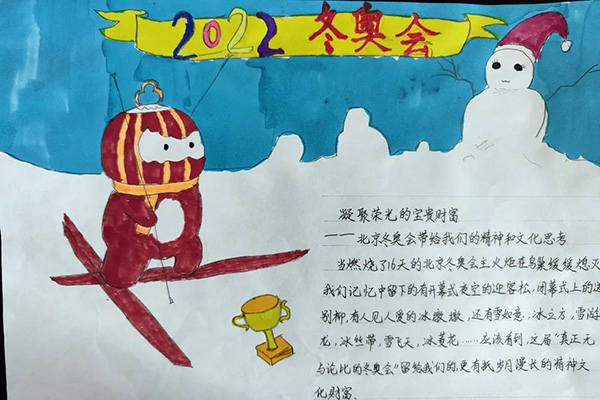 2022 冬奥会
凝聚荣光的宝贵财富
——北京冬奥会带给我们的精神和文化思考
当燃烧了16天的北京冬奥会主火炬在鸟巢缓缓熄灭
我们记忆中留下的有开幕式夜空的迎客松，闭幕式上的送
别柳，有人见人爱的冰墩墩，还有雪如意，冰立方，雪游
龙，冰丝带，雪飞天，冰菱花……应该看到，这届“真正无
与论比的冬奥会”留给我们的，更有岁月漫长的精神文
化财富、